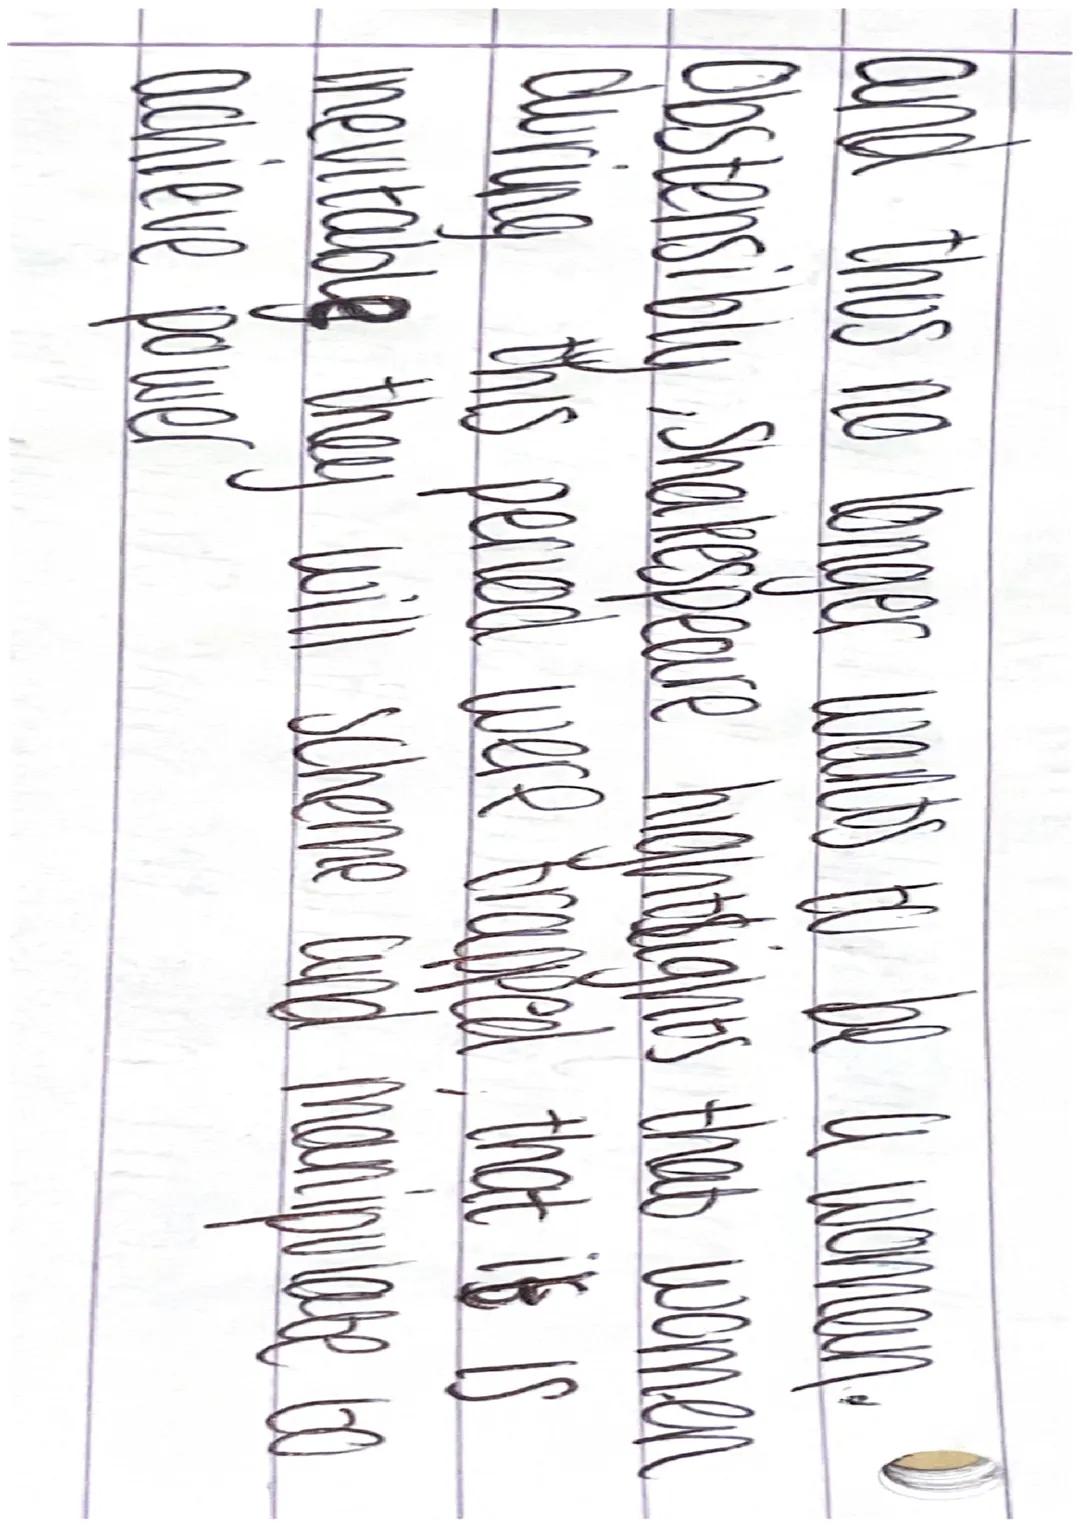 and thus no longer wants to be a woman.
Obstensibly, Shakespeare highlights that women
during this period were trapped, that it is
inevitable they will scheme and manipulate to
achieve power